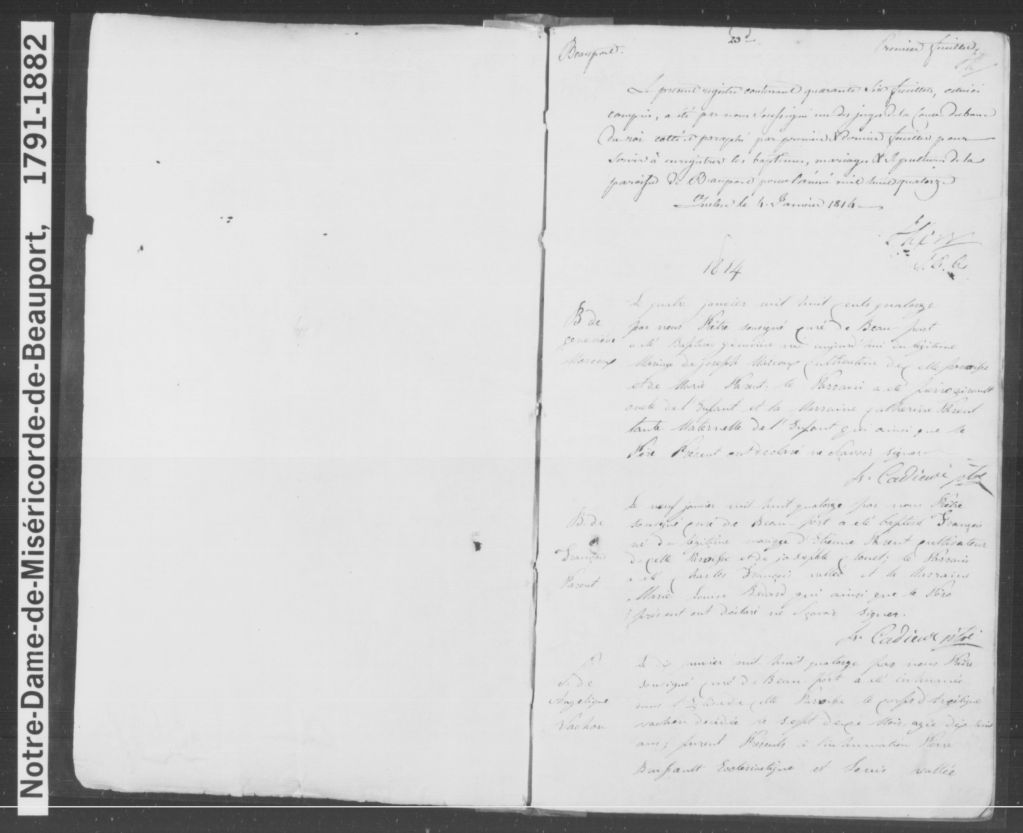 Notre-Dame-de-Miséricorde-de-Beauport, 1791-1882
Beauport.
23e
Premier feuillet
Le present registre contenant quarante Six feuillets, celui ci
compris, a été par nous Soussigné un des juges de la Cour du banc
du roi cotté & paraphé par premier & dernier feuillet pour
Servir à enregistrer les baptêmes, mariages & Sepultures de la
paroisse de Beauport pour l'année mil huit quatorze
Québec le 4 Janvier 1814
J. B. R.
1814
B de
genevieve
Marcoux
Le quatre janvier mil huit cents quatorze
par nous Prêtre sousigné Curé de Beau-port
a été Baptisé genevieve né aujourd'hui du légitime
Mariage de Joseph Marcoux Cultivateur de cette paroisse
et de Marie Parent; le Parrain a été pierre
oncle de l'Enfant et la Marraine Catherine Parent
tante Maternelle de l'Enfant qui ainsi que le
Père Présent ont déclaré ne sçavoir signer
Cadieux ptre
B de
François
Parent
Le neuf janvier mil huit quatorze par nous Prêtre
sousigné curé de Beau-port a été baptisé François
né du légitime mariage d'Etienne Parent cultivateur
de cette Paroisse et de josephte le Parrain
a été Charles François vallée et la Marraine
Marie Louise qui ainsi que le Père
présent ont déclaré ne sçavoir signer.
Cadieux ptre
S. de
Angelique
Vachon
Le janvier mil huit quatorze par nous Prêtre
sousigné Curé de Beau-port a été inhumée
dans cette Paroisse le corps d'Angelique
vachon décédée le sept de ce Mois, agée dix huit
ans; furent Présents à l'inhumation Pierre
Ecclesiastique et Louis vallée